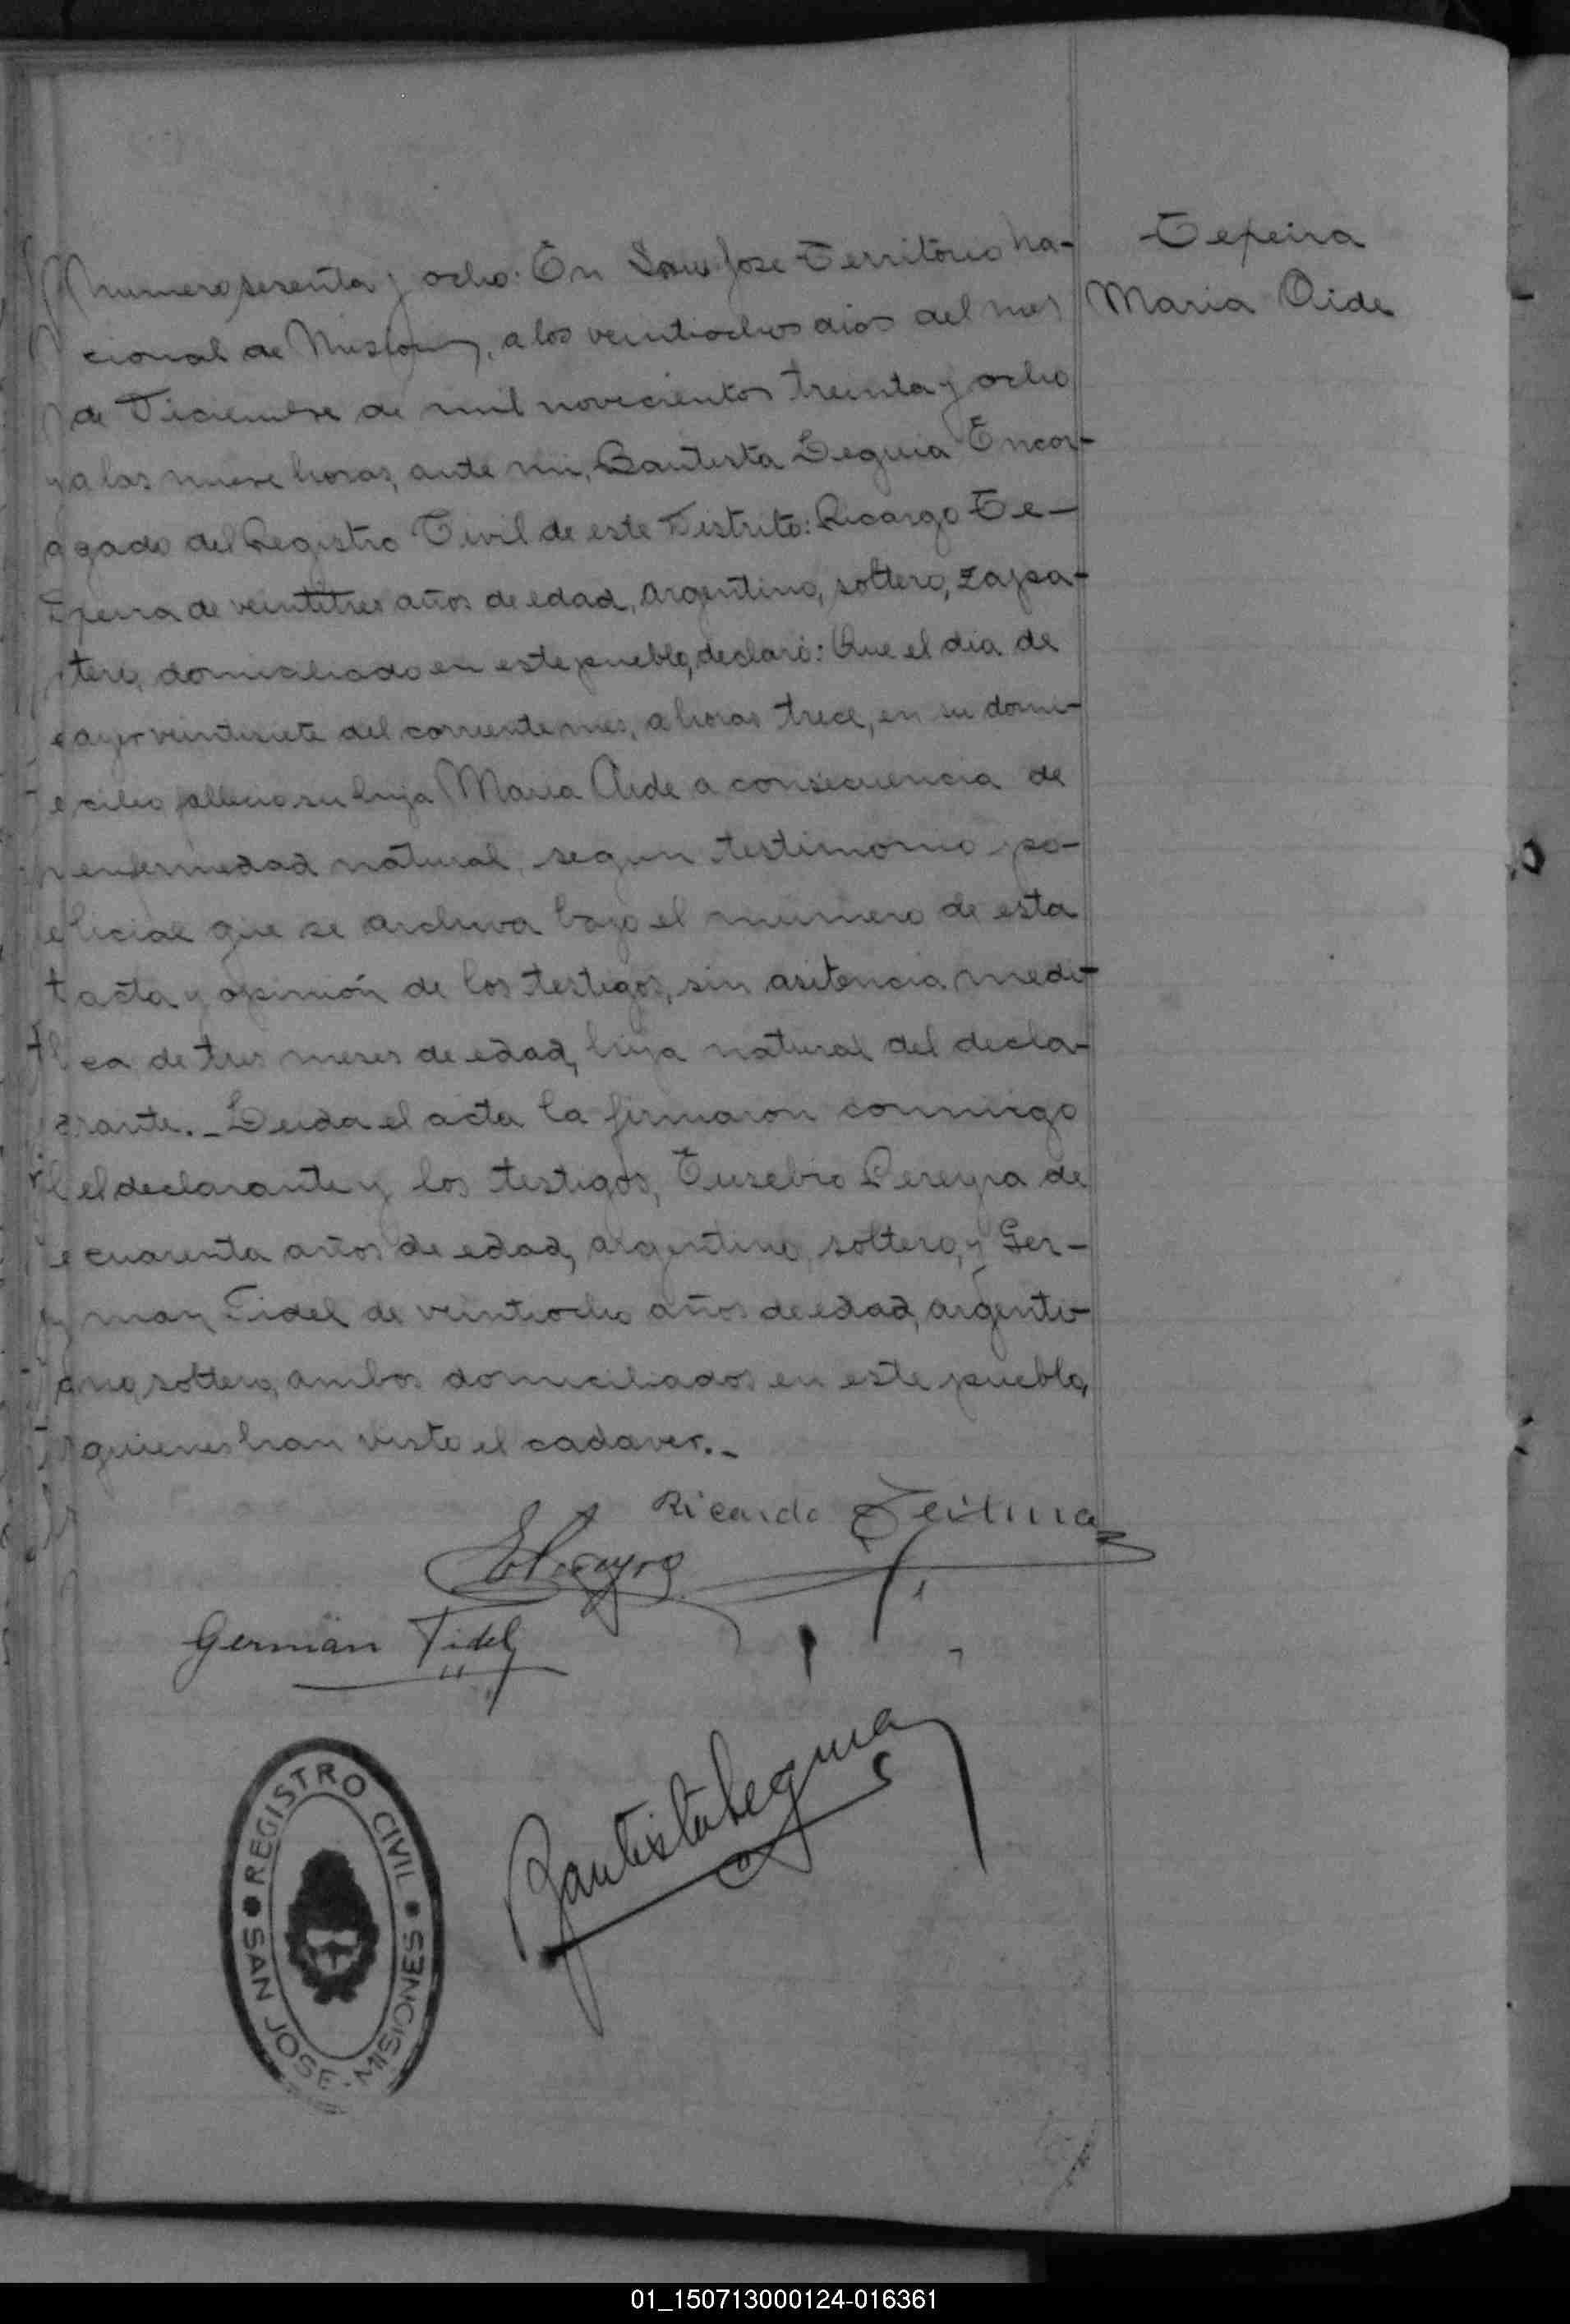 Tepeira
Maria Aide
Numero sesenta y ocho: En San Jose Territorio na-
cional de Misiones, a los veintiocho dias del mes
de Diciembre de mil novecientos treinta y ocho
y a las nueve horas, ante mi, Bautista Leguia Encar-
gado del Registro Civil de este Distrito: Ricargo Te-
peira de veintitres años de edad, argentino, soltero, zapa-
tero, domiciliado en este pueblo, declaró: Que el dia de
ayer veintisiete del corriente mes, a horas trece, en su domi-
cilio fallecio su hija Maria Aide a consecuencia de
enfermedad natural, segun testimonio po-
licial que se archiva bajo el numero de esta
acta y opinión de los testigos, sin asitencia medi-
ca de tres meses de edad, hija natural del decla-
rante._ Leida el acta la firmaron conmigo
el declarante y los testigos, Eusebio Pereyra de
cuarenta años de edad, argentino, soltero, y Ger-
man Fidel de veintiocho años de edad, argenti-
no, soltero, ambos domiciliados en este pueblo,
quienes han visto el cadaver._
Ricardo
German Fidel
Bautista Leguia
REGISTRO CIVIL
SAN JOSE - MISIONES
01_150713000124-016361